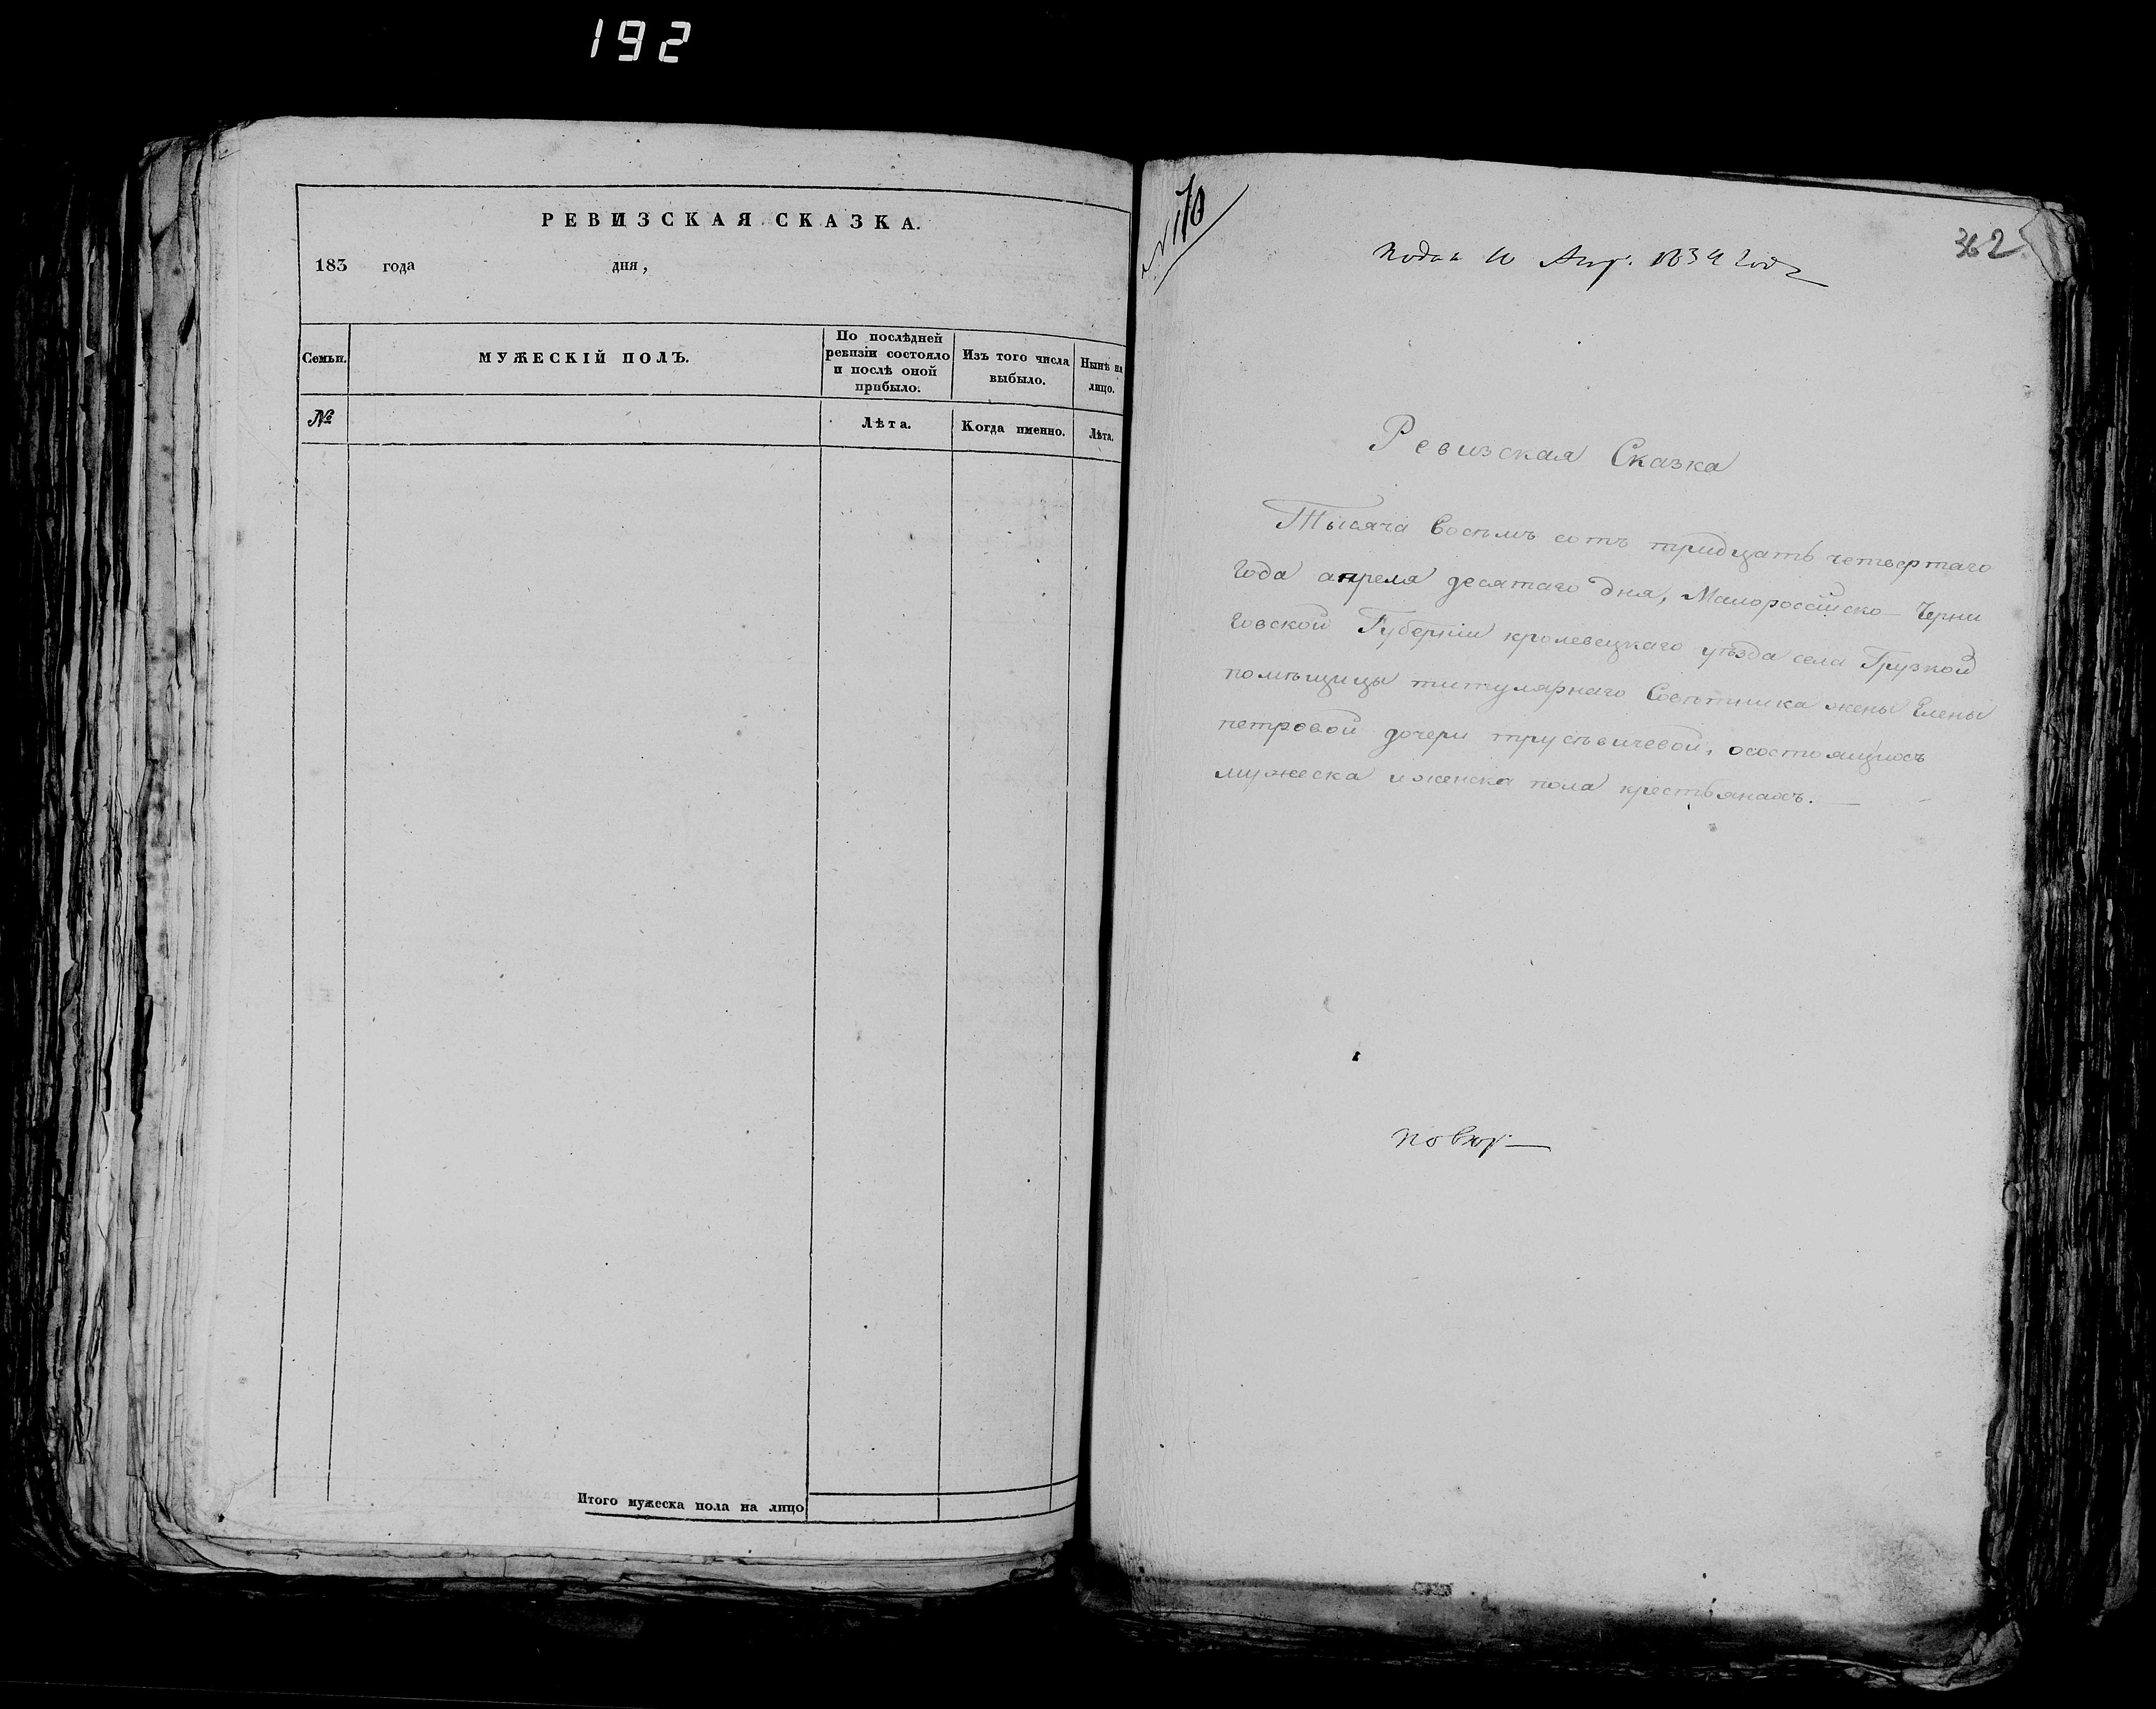 192
РЕВИЗСКАЯ СКАЗКА.
183 года дня,
Семьи.
МУЖЕСКІЙ ПОЛЪ.
По послѣдней
ревизіи состояло
и послѣ оной
прибыло.
Изъ того числа
выбыло.
Нынѣ на
лицо.
№
Лѣта.
Когда именно.
Лѣта.
Итого мужеска пола на лицо
362
Подана 10 Апр. 1834 года
Ревизская Сказка
Тысяча восемъ сотъ тридцать четвертаго
года апреля десятаго дня, Малоросійско Черни
говской Губерніи кролевецкаго уѣзда села Грузкой
помѣщицы титулярнаго Совѣтника жены Елены
петровой дочери трусѣвичевой, осостоящихъ
мужеска иженска пола крестьянахъ.